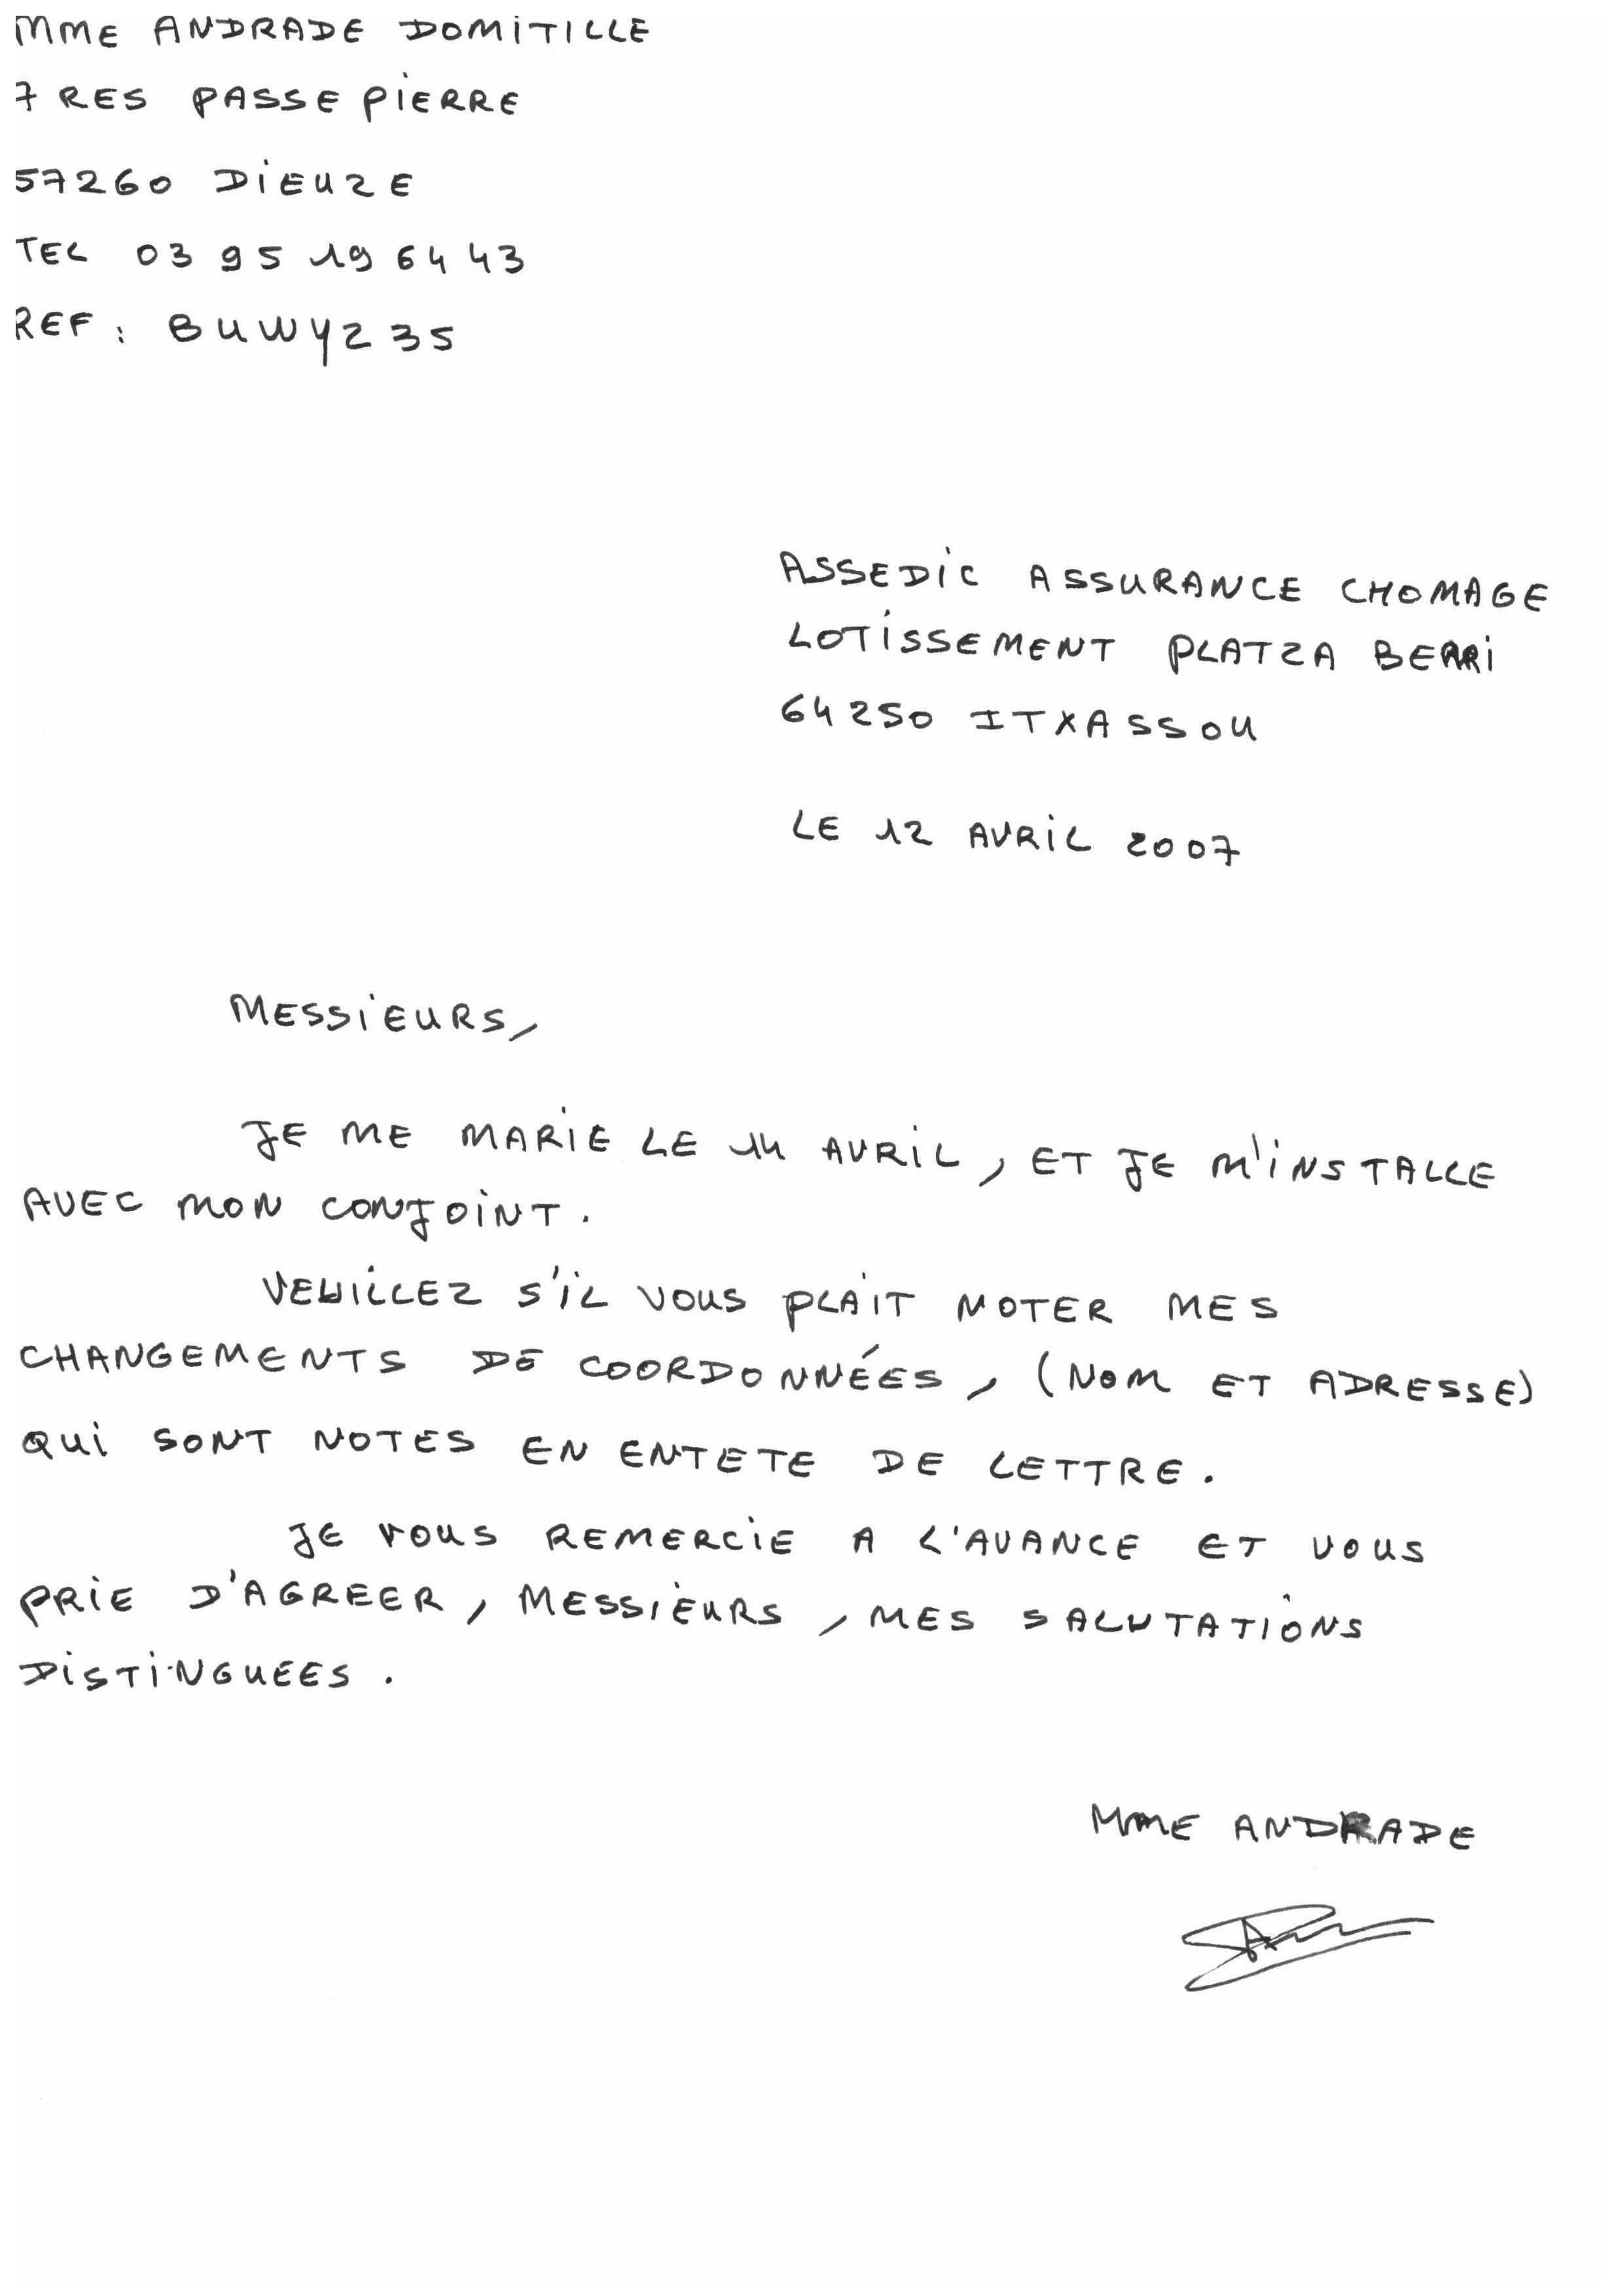 MME ANDRADE DOMITILLE
7 RES PASSE PIERRE
57260 DIEUZE
TEL 03 95 19 64 43
REF : BUWYZ35
ASSEDIC ASSURANCE CHOMAGE
LOTISSEMENT PLATZA BERRI
64250 ITXASSOU
LE 12 AVRIL 2007
MESSIEURS,
JE ME MARIE LE 14 AVRIL, ET JE M'INSTALLE
AVEC MON CONJOINT.
VEUILLEZ S'IL VOUS PLAIT NOTER MES
CHANGEMENTS DE COORDONNÉES, (NOM ET ADRESSE)
QUI SONT NOTES EN ENTETE DE LETTRE.
JE VOUS REMERCIE A L'AVANCE ET VOUS
PRIE D'AGREER, MESSIEURS, MES SALUTATIONS
DISTINGUEES.
MME ANDRADE